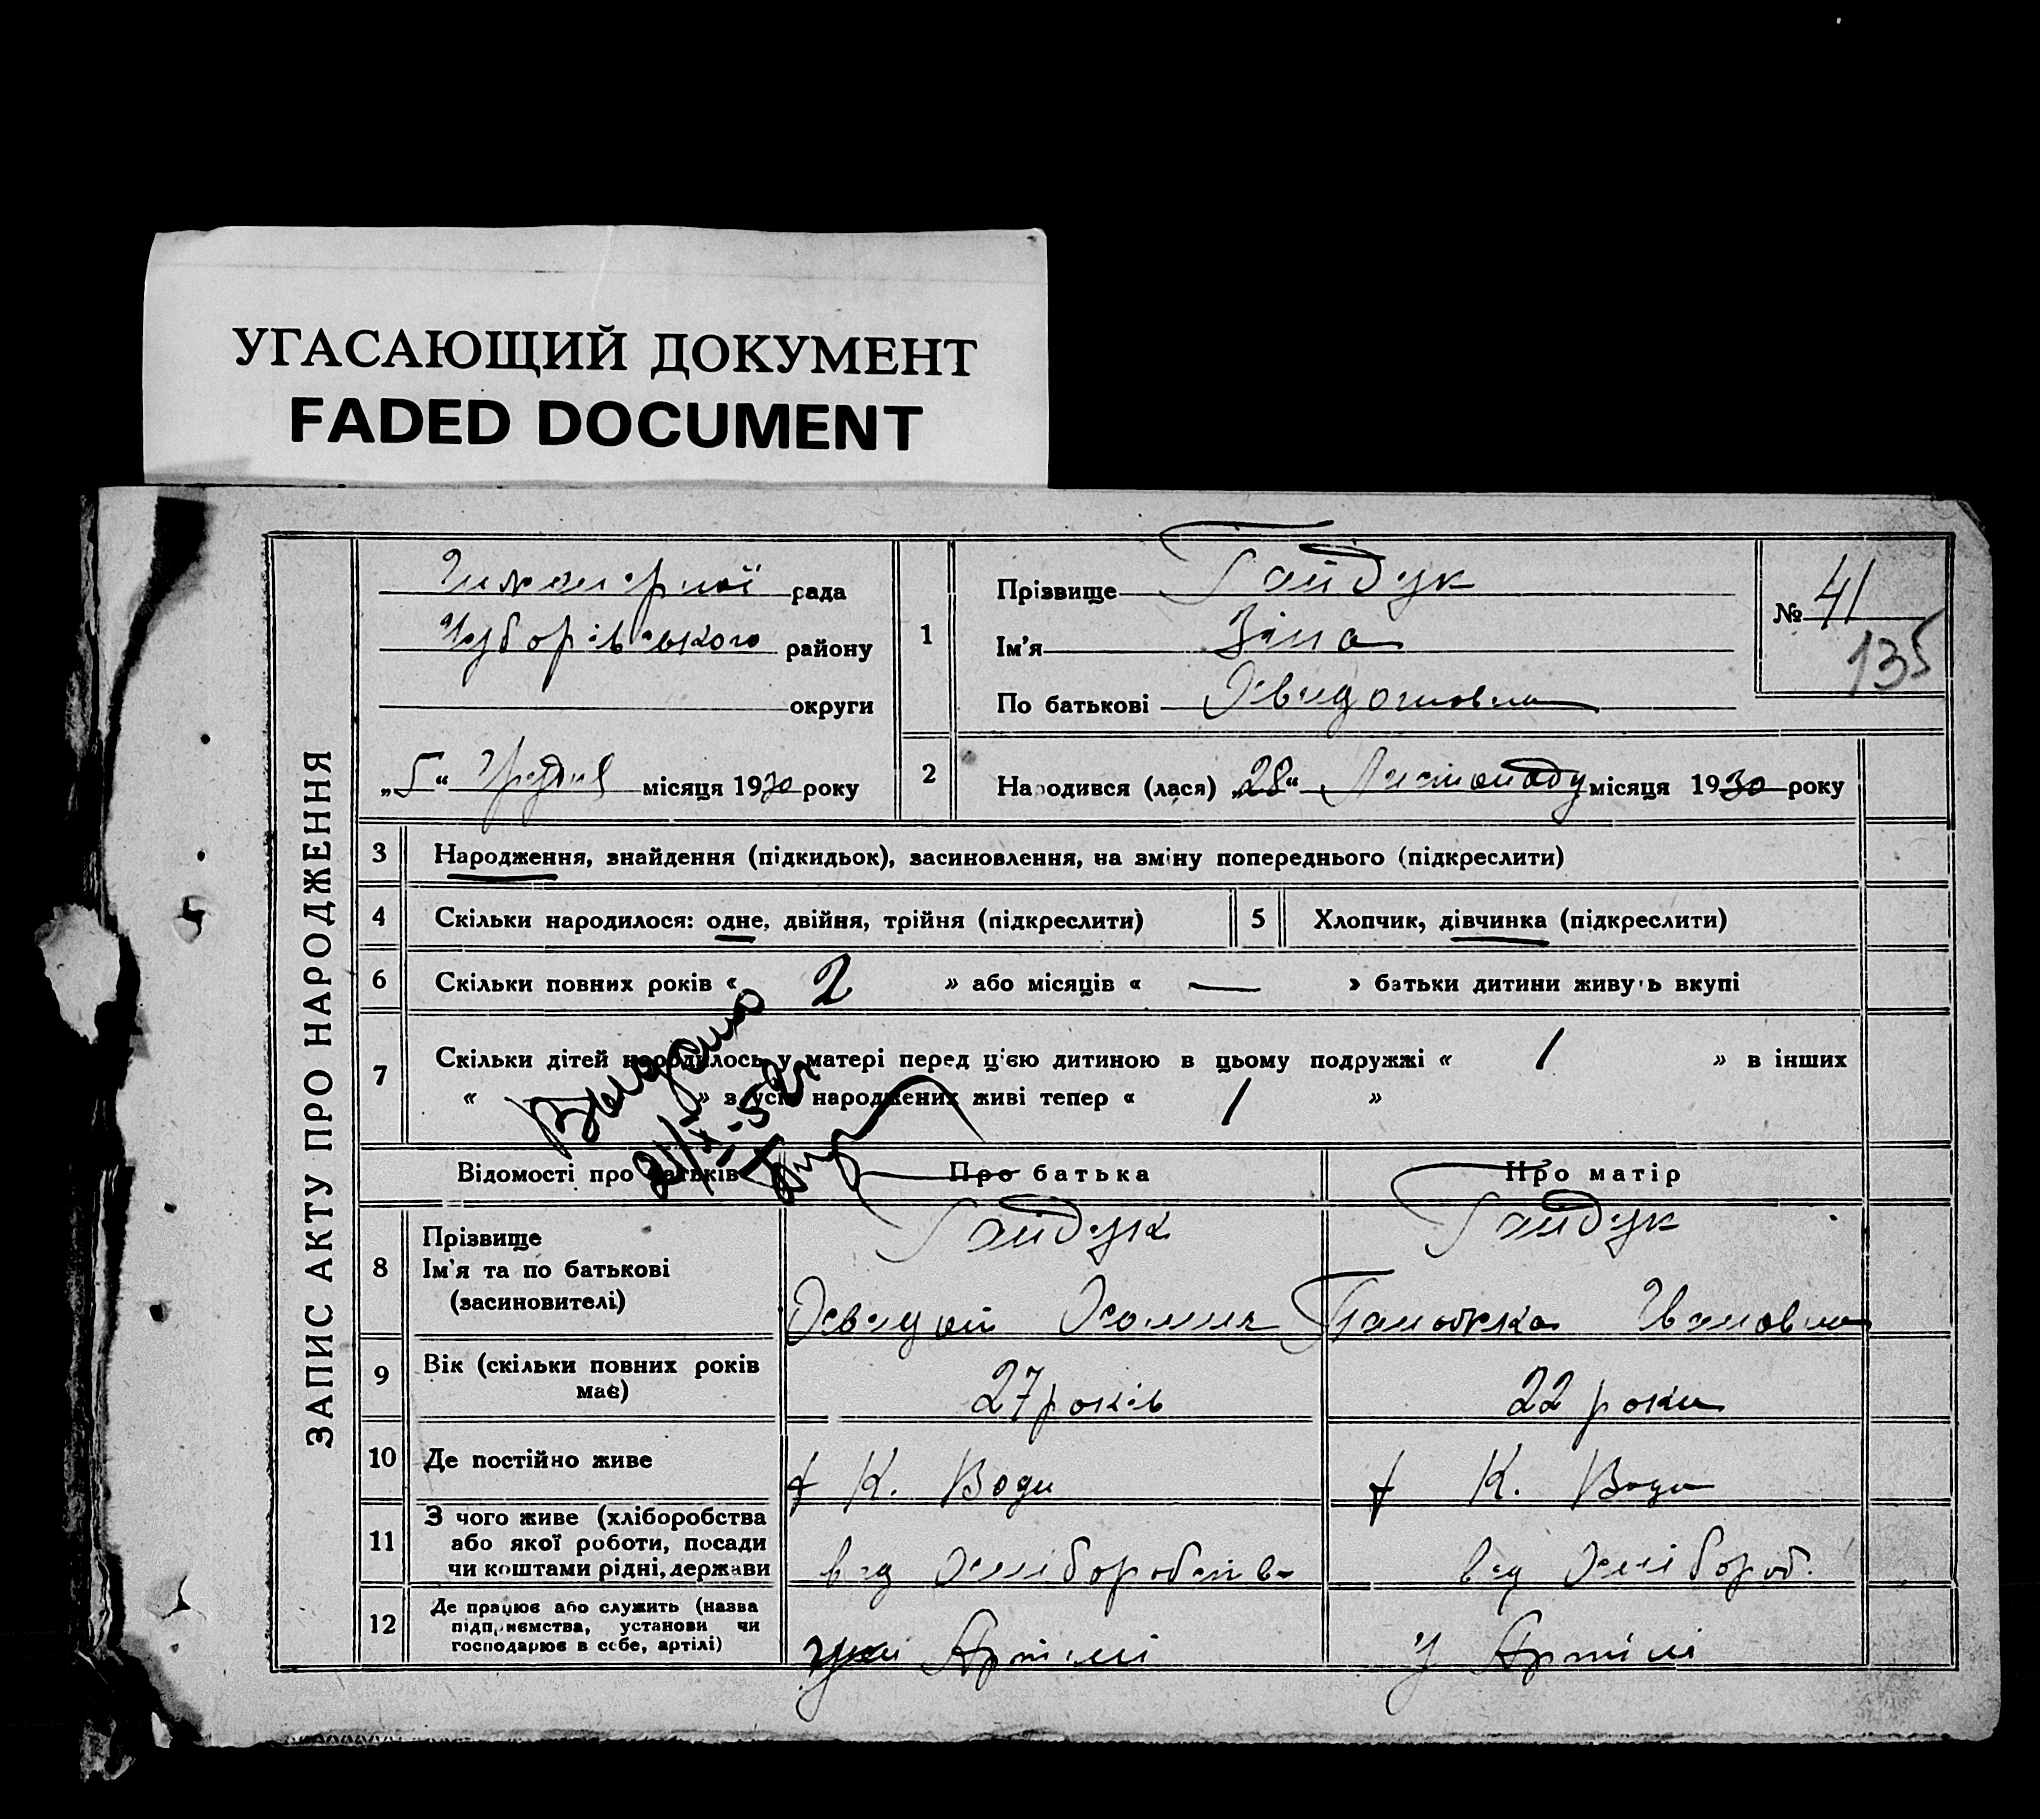 УГАСАЮЩИЙ ДОКУМЕНТ
FADED DOCUMENT
ЗАПИС АКТУ ПРО НАРОДЖЕННЯ
рада
Чуборівського району
округи
„5“ Грудня місяця 1930 року
1
Прізвище Гайдук
Ім'я Зіна
По батькові
№ 41
135
2
Народився (лася) „28“ Листопаду місяця 1930 року
3 Народження, знайдення (підкидьок), засиновлення, на зміну попереднього (підкреслити)
4 Скільки народилося: одне, двійня, трійня (підкреслити) 5 Хлопчик, дівчинка (підкреслити)
6 Скільки повних років « 2 » або місяців « — » батьки дитини живуть вкупі
7 Скільки дітей народилось у матері перед цією дитиною в цьому подружжі « 1 » в інших
« » з усіх народжених живі тепер « 1 »
Выдано
Відомості про батьків Про батька Про матір
8 Прізвище Гайдук Гайдук
Ім'я та по батькові
(засиновителі) Івановна
9 Вік (скільки повних років
має) 27 років 22 роки
10 Де постійно живе К. Води К. Води
11 З чого живе (хліборобства
або якої роботи, посади
чи коштами рідні, держави від хліборобств від хлібороб.
12 Де працює або служить (назва
підприємства, установи чи
господарює в себе, артілі) Артілі У Артілі